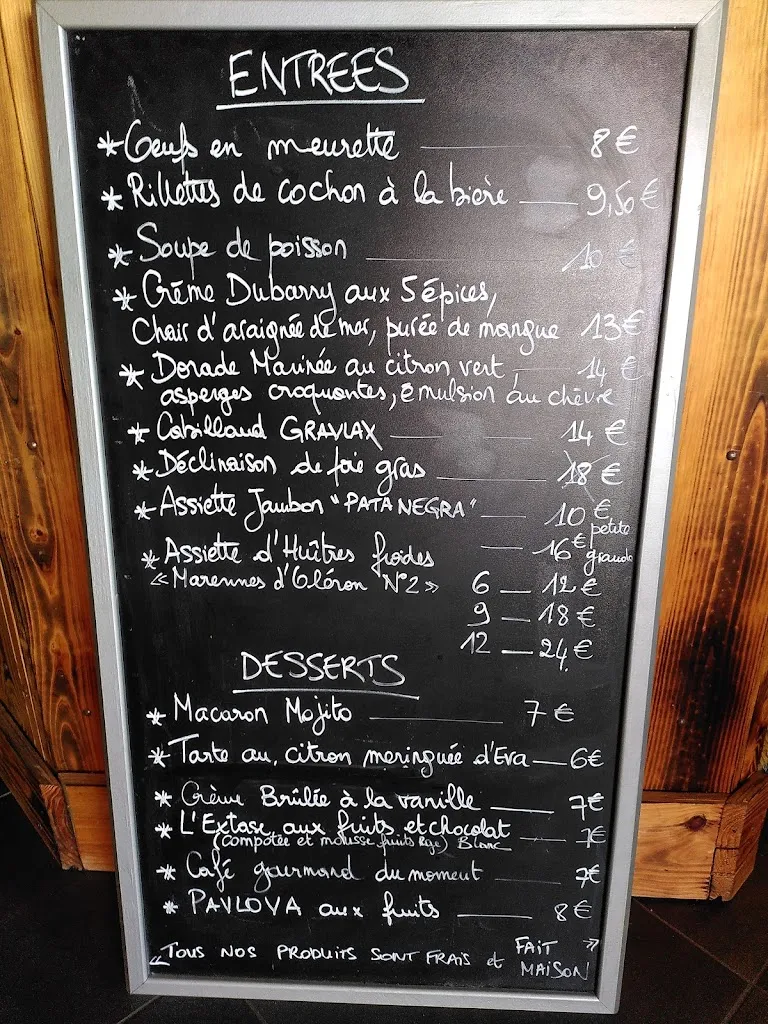 ENTREES
* Oeufs en meurette — 8 €
* Rillettes de cochon à la bière — 9,50 €
* Soupe de poisson — 10 €
* Crème Dubarry aux 5 épices,
Chair d'araignée de mer, purée de mangue 13 €
* Dorade Marinée au citron vert, 14 €
asperges croquantes, émulsion au chèvre
* Cabillaud GRAVLAX — 14 €
* Déclinaison de foie gras — 18 €
* Assiette Jambon "PATA NEGRA" — 10 € petite
— 16 € grande
* Assiette d'Huîtres froides
« Marennes d'Oléron N°2 » 6 — 12 €
9 — 18 €
12 — 24 €
DESSERTS
* Macaron Mojito — 7 €
* Tarte au citron meringuée d'Eva — 6 €
* Crème Brûlée à la vanille — 7 €
* L'Extase aux fruits et chocolat — 7 €
(compotée et mousse fruits Rge) Blanc
* Café gourmand du moment — 7 €
* PAVLOVA aux fruits — 8 €
« TOUS NOS PRODUITS SONT FRAIS et FAIT MAISON »